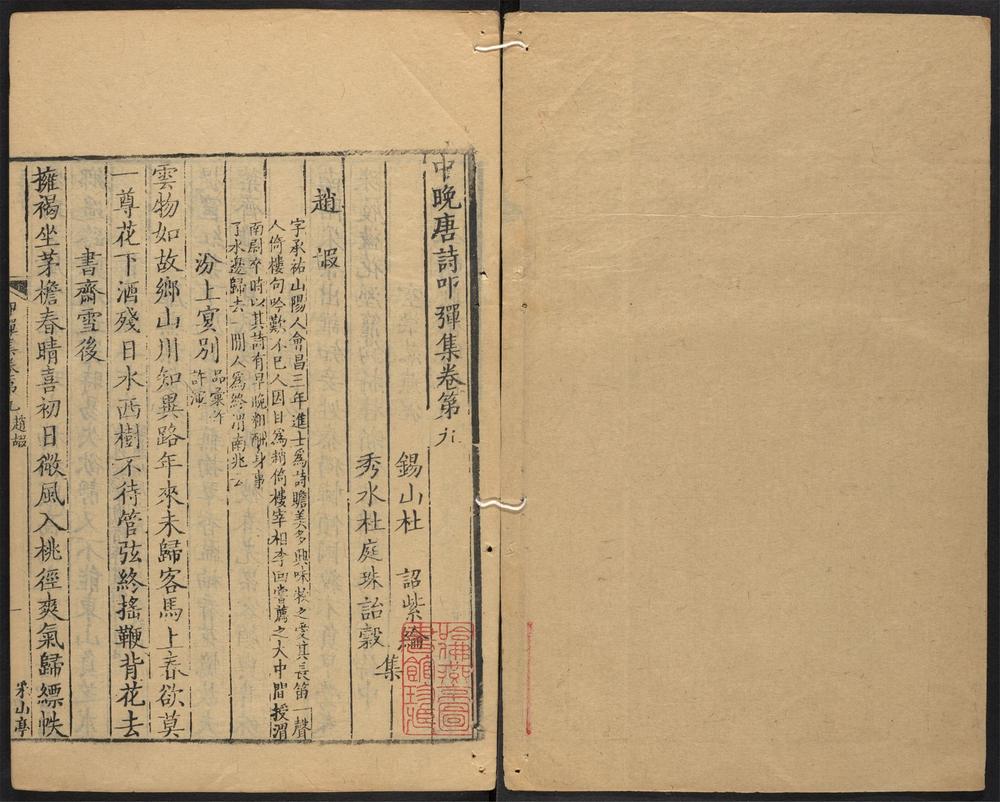 中晚唐詩叩彈集卷第九
錫山杜 詔紫綸
秀水杜庭珠詒穀 集
趙嘏
字承祐山陽人會昌三年進士爲詩贍美多興味牧之愛其長笛一聲
人倚樓句吟歎不已人因目爲趙倚樓宰相李回嘗薦之大中間授渭
南尉卒時以其詩有早晚粗酬身事
了水邊歸去一閒人爲終渭南兆云
汾上宴別 品彙許
許渾
雲物如故鄉山川知異路年來未歸客馬上春欲莫
一尊花下酒殘日水西樹不待管弦終搖鞭背花去
書齋雪後
擁褐坐茅檐春晴喜初日微風入桃徑爽氣歸縹帙
叩彈集卷第九 趙嘏
一
采山亭
哈佛燕京圖
書館珍藏